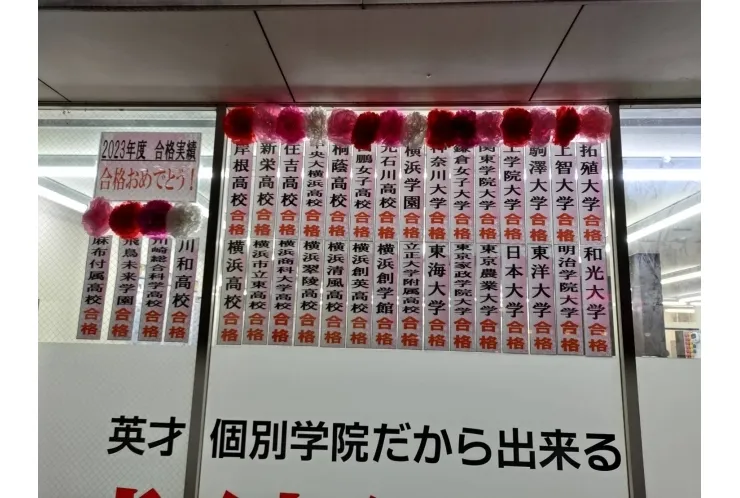 2023年度 合格実績
合格おめでとう!
麻布付属高校 合格
飛鳥未来学園 合格
川崎総合科学高校 合格
川和高校 合格
岸根高校 合格
新栄高校 合格
住吉高校 合格
中央大横浜高校 合格
桐蔭高校 合格
白鵬女子高校 合格
元石川高校 合格
横浜学園 合格
神奈川大学 合格
鎌倉女子大学 合格
関東学院大学 合格
工学院大学 合格
駒澤大学 合格
上智大学 合格
拓殖大学 合格
横浜高校 合格
横浜市立東高校 合格
横浜商科大学高校 合格
横浜翠陵高校 合格
横浜清風高校 合格
横浜創英高校 合格
横浜創学館 合格
立正大学附属高校 合格
東海大学 合格
東京家政学院大学 合格
東京農業大学 合格
日本大学 合格
東洋大学 合格
明治学院大学 合格
和光大学 合格
英才個別学院だから出来る